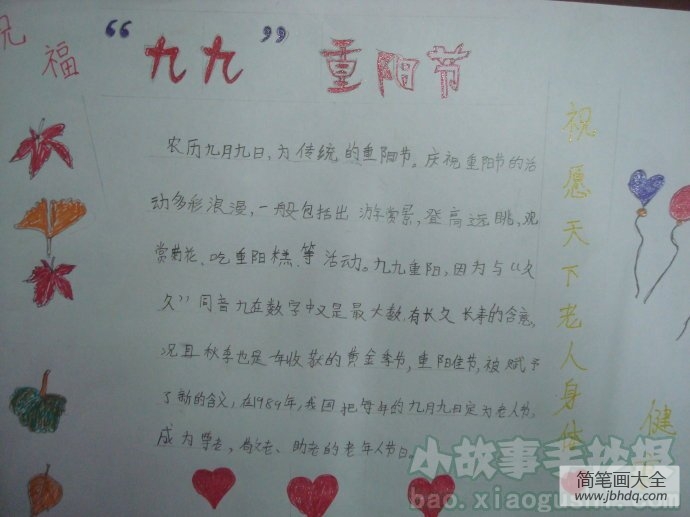 祝福
“九九”重阳节
农历九月九日,为传统的重阳节。庆祝重阳节的活
动多彩浪漫,一般包括出游赏景、登高远眺、观
赏菊花、吃重阳糕、等活动。九九重阳,因为与“久
久”同音九在数字中又是最大数,有长久长寿的含意,
况且秋季也是一年收获的黄金季节,重阳佳节,被赋予
了新的含义,在1989年,我国把每年的九月九日定为老人节,
成为尊老、敬老、助老的老年人节日。
祝愿天下老人身体
健
小故事手抄报
bao.xiaogushi.com
简笔画大全
www.jbhdq.com